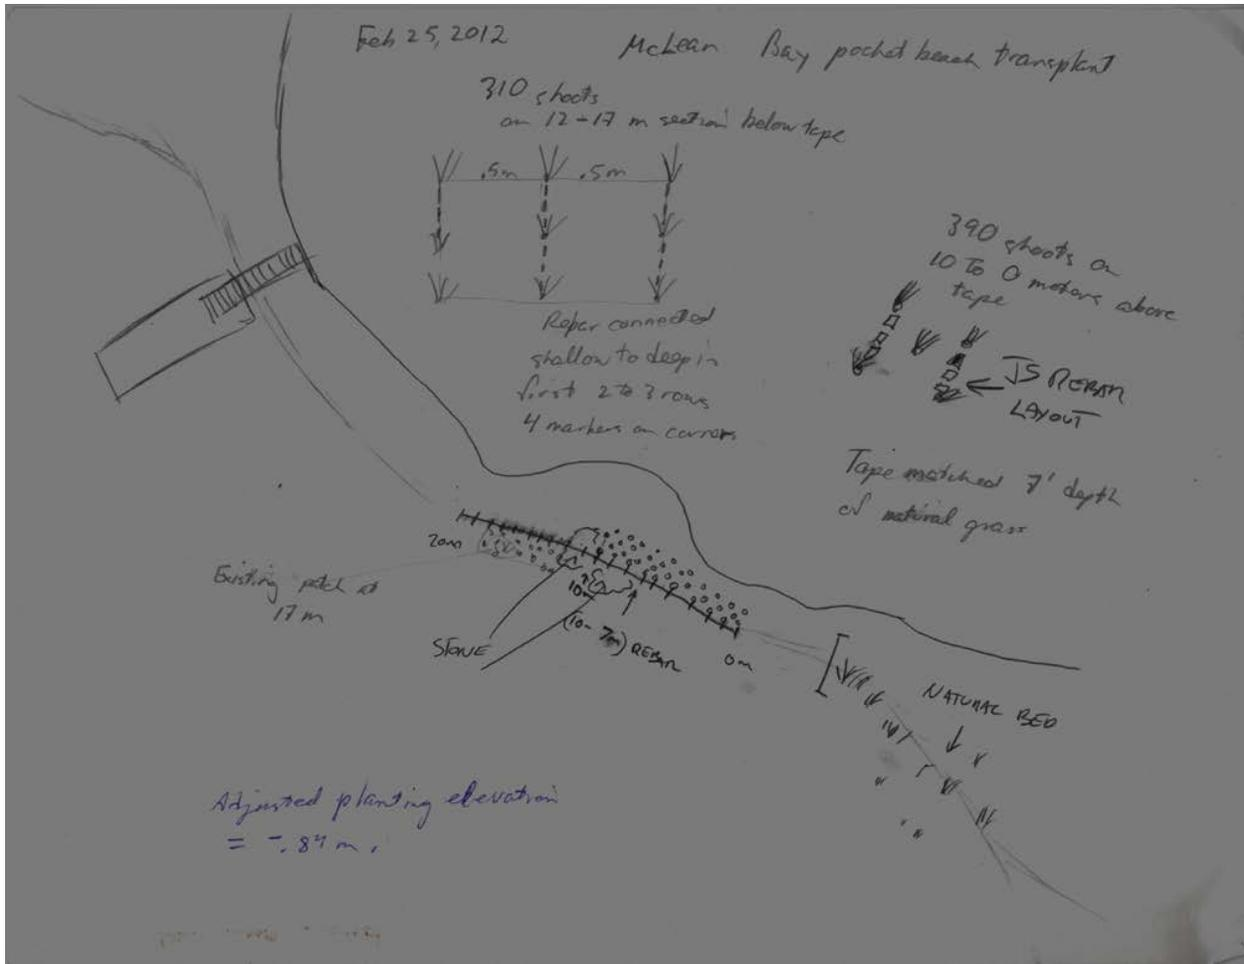 Feb 25, 2012
McLean Bay pocket beach transplant
310 shoots
on 12-17 m section below tape
.5m .5m
Rebar connected
shallow to deep in
first 2 to 3 rows
4 markers on corners
390 shoots on
10 To 0 meters above
tape
JS REBAR
LAYOUT
Tape matched 7' depth
of natural grass
20m
Existing patch at
17 m
STONE
10m
(10-7m) REBAR
0m
NATURAL BED
Adjusted planting elevation
= -.84 m.